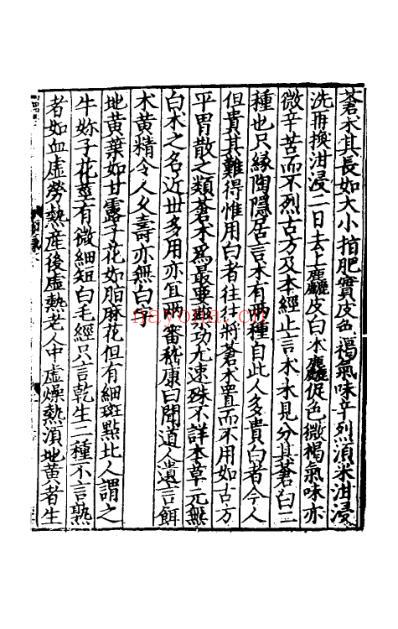 蒼术其長如大小指肥實皮色褐氣味辛烈湏米泔浸
洗再換泔浸二日去上麤皮白术麤促色微褐氣味亦
微辛苦而不烈古方及本經止言术未見分其蒼白二
種也只緣陶隱居言术有兩種自此人多貴白者今人
但貴其難得惟用白者往往將蒼术置而不用如古方
平胃散之類蒼术爲最要藥功尤速殊不詳本草元無
白术之名近世多用亦宜兩審嵇康曰聞道人遺言餌
术黄精令人久壽亦無白字
地黄葉如甘露子花如脂麻花但有細斑點北人謂之
牛妳子花莖有微細短白毛經只言乾生二種不言熟
者如血虛勞熱產後虛熱老人中虛燥熱湏地黄者生